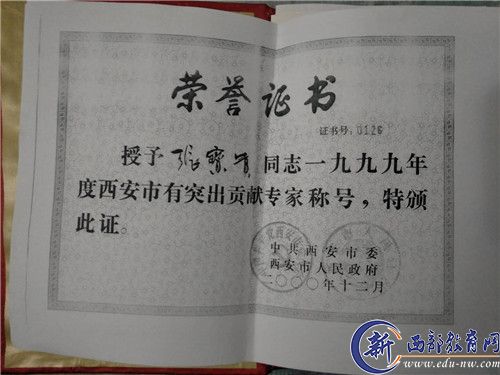 荣誉证书
证书号:0126
授予张宝
同志一九九九年
度西安市有突出贡献专家称号,特颁
此证。
中共西安市委
西安市人民政府
二〇〇〇年十二月
新 西部教育网
www.edu-nw.com